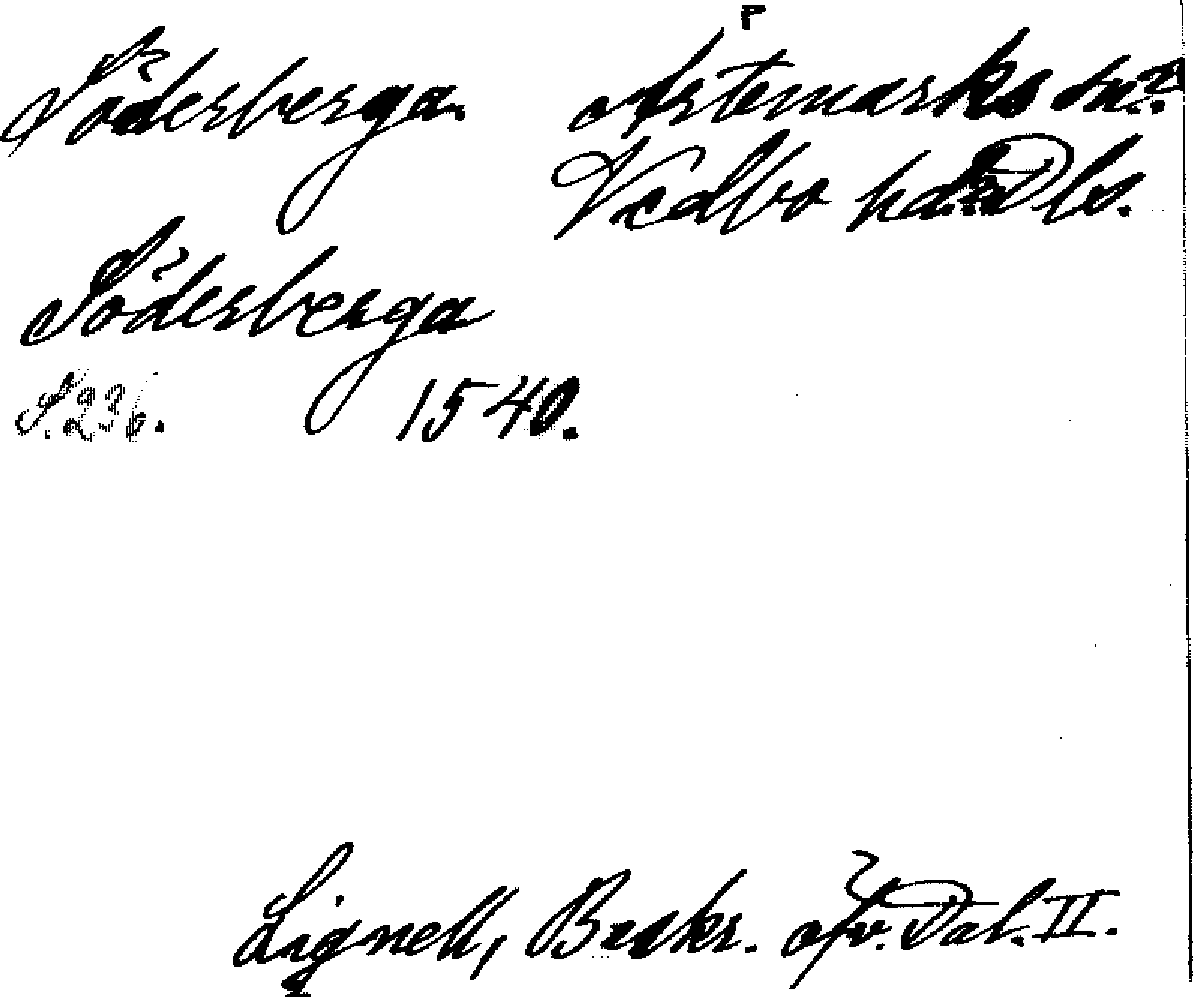 P
Söderberga. Ärtemarks sn.
Vedbo hd. Dls.
Söderberga
S. 236. 1540.
Lignell, Beskr. öfv. Dal. II.